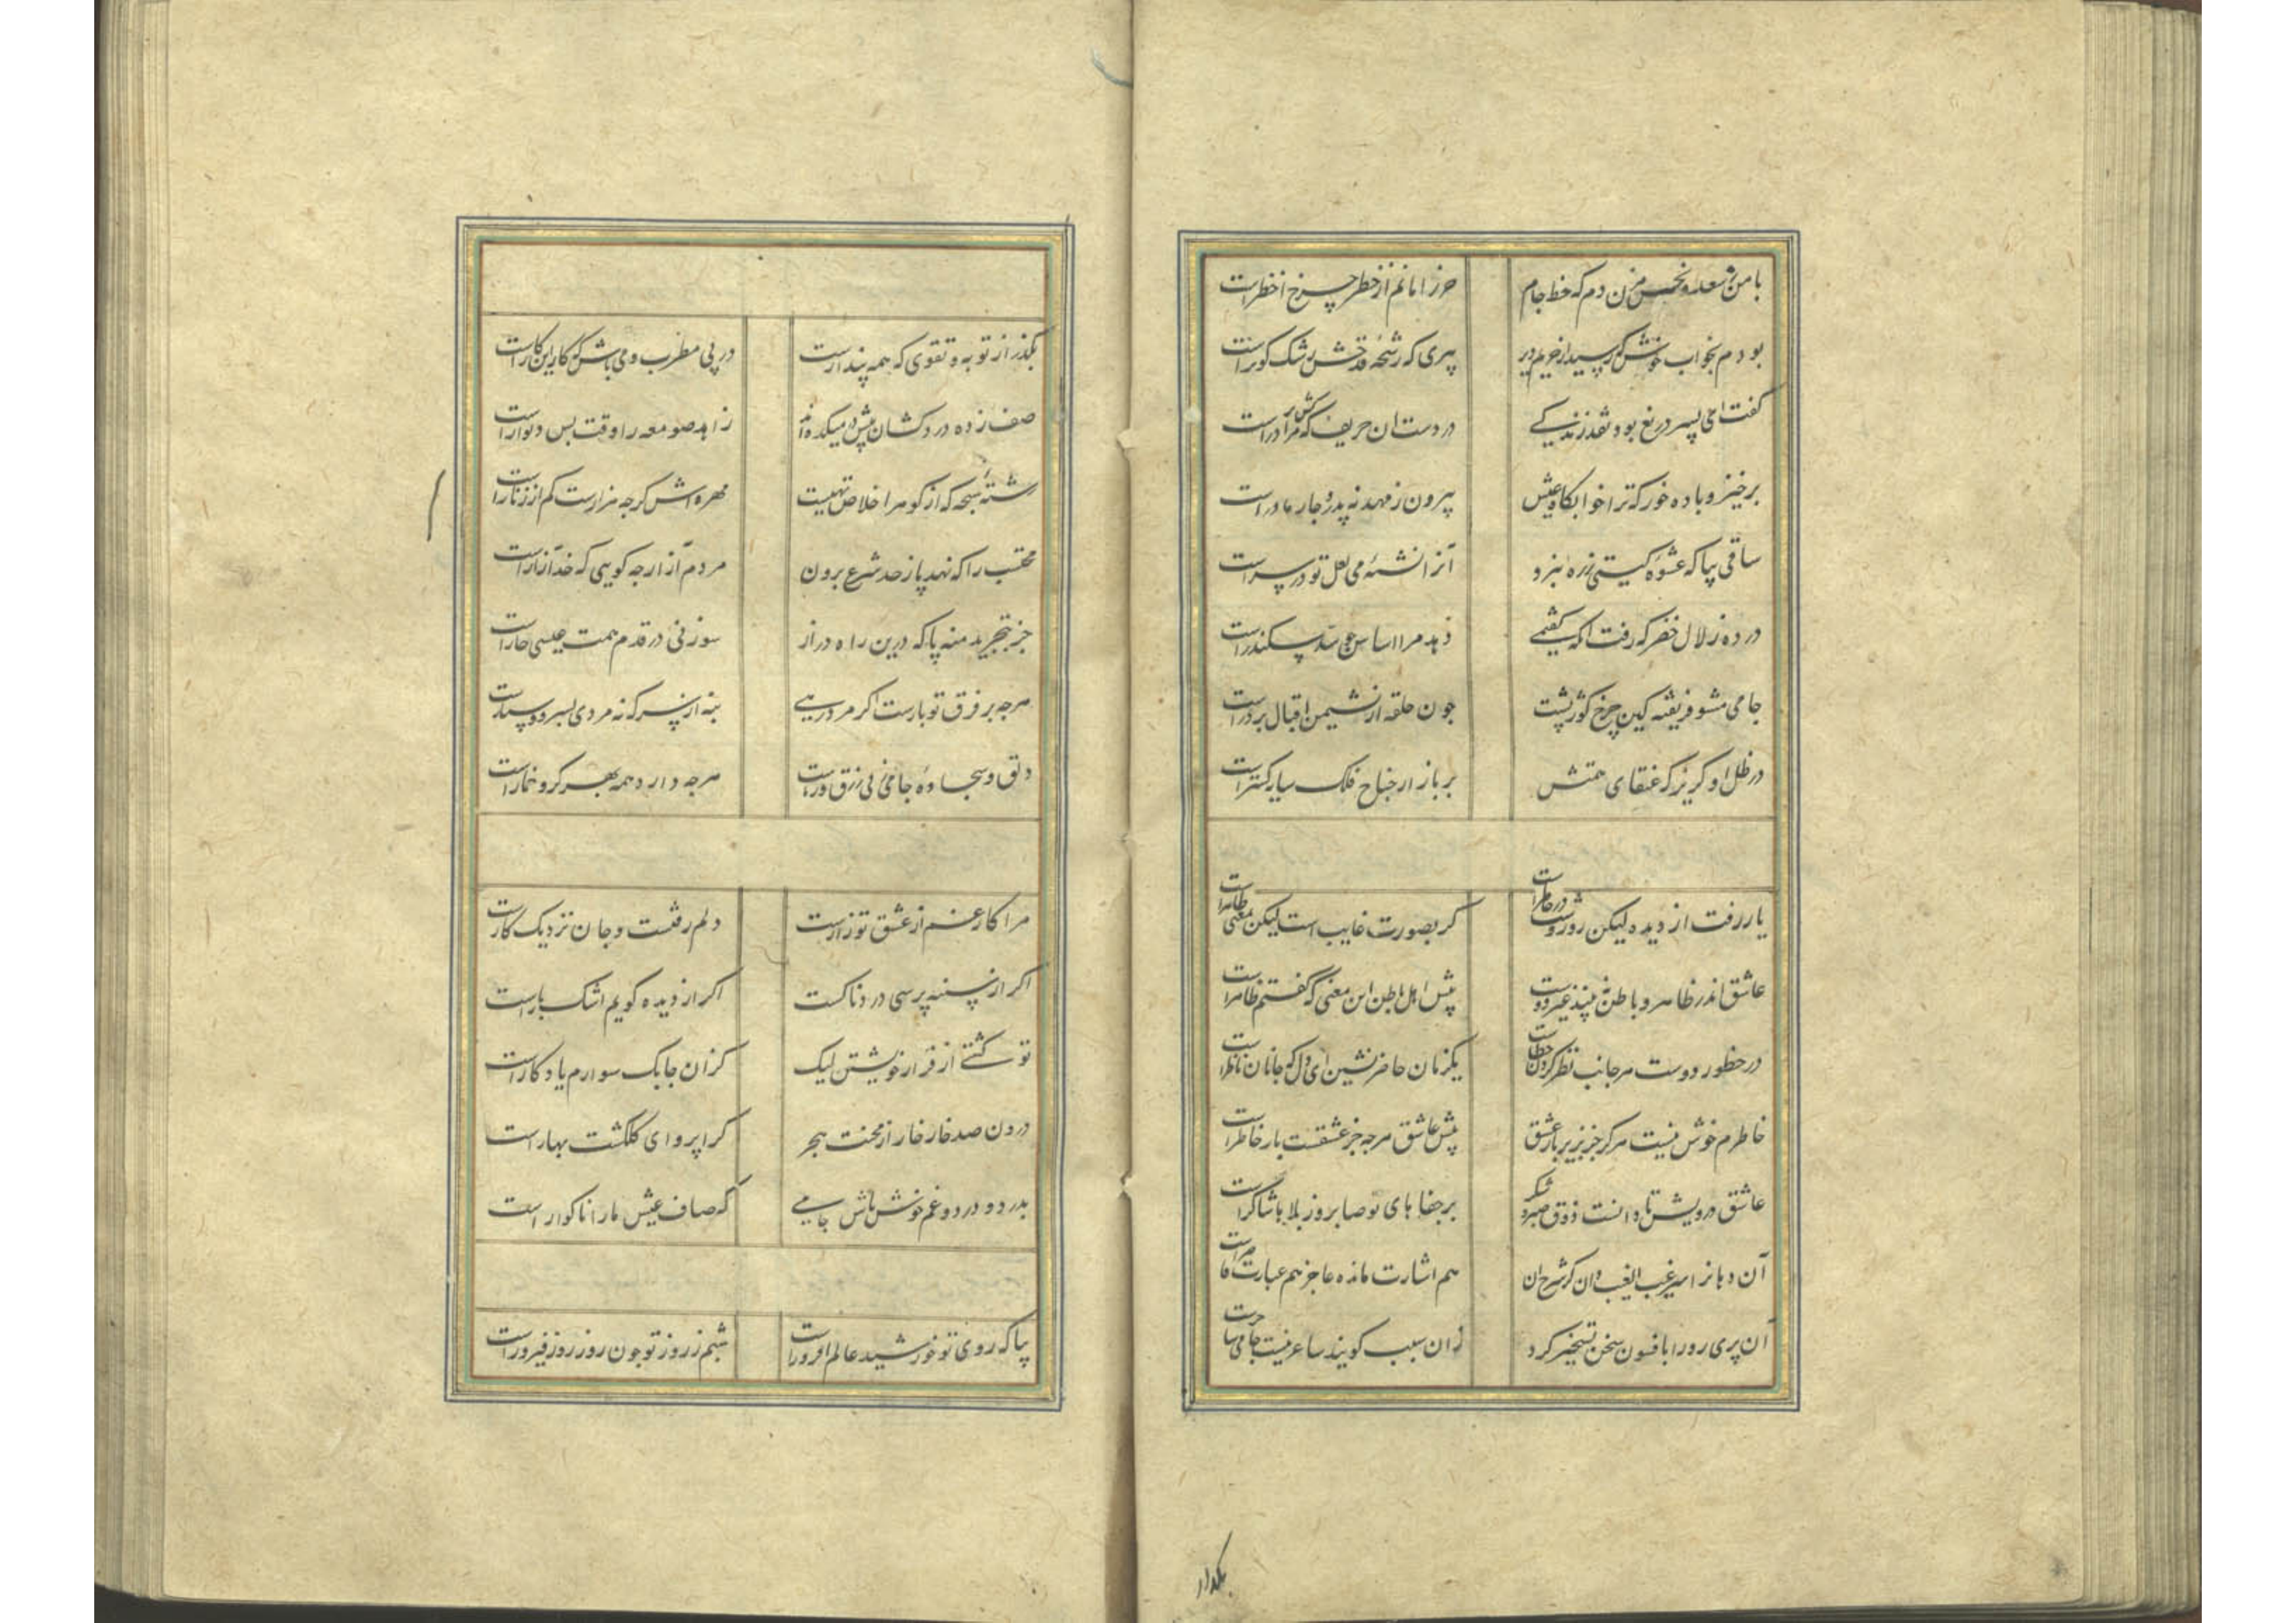 با من ز سعد و نحس مزن دم که خط جام حرز امانم از خطر چرخ اخضر است
بودم بخواب خوش که رسید از حریم دیر پیری که رشحه قدحش رشک کوثر است
گفت ای پسر دریغ بود نقد زندگی در دست آن حریف که مرا در سر است
برخیز و باده خور که ترا خوابگاه عیش بیرون ز مهد نه پدر و چار مادر است
ساقی بیا که عشوه گیتی ز ره نبرد آنرا نشئه می لعل تو در سر است
در ده زلال خضر که رفت آنکه گفتمی زهد مرا اساس چو سد سکندر است
جامی مشو فریفته کین چرخ کوژپشت چون حلقه از نشیمن اقبال بر در است
در ظل او گریز که عنقای همتش برباز از جناح فلک سایه گستر است
یار رفت از دیده لیکن روز و شب در خاطر است گر بصورت غایب است لیکن بمعنی ظاهر است
عاشق اندر ظاهر و باطن نه بیند غیر دوست پیش اهل باطن این معنی که گفتم ظاهر است
در حظور دوست هر جانب نظر کردن خطاست یکزمان حاضر نشین ای دل که جانان ناظر است
خاطرم خوش نیست هرگز جز بزیر بار عشق پیش عاشق هر چه جز عشقست بار خاطر است
عاشق درویش تا دانست ذوق صبر و شکر بر جفاهای تو صابر وز بلاها شاکر است
آن دهانرا سر غیب الغیب دان کز شرح آن هم اشارت مانده عاجز هم عبارت قاصر است
آن پری رو را بافسون سخن تسخیر کرد زان سبب گویند ساعر نیست جامی ساحر است
بگذر
بگذر از توبه و تقوی که همه پندار است در پی مطرب و می باش که کار این کار است
صف زده دردکشان پیش در میکده‌اند زاهد صومعه را وقت پس دیوار است
رشته سبحه که از گوهر اخلاص تهیست مهره‌اش گرچه هزارست کم از زنار است
محتسب را که نهد پا ز حد شرع برون مردم آزار چه گویی که خدا آزار است
جز بتجرید منه پا که درین راه دراز سوزنی در قدم همت عیسی خار است
هرچه بر فرق تو بارست اگر مرد رهی بنه از سر که نه مردی بسر و دستار است
دلق و سجاده جامی ز پی زرق و ریاست هرچه دارد همه بهر گرو خمار است
مرا کار غم از عشق تو زارست دلم رفتست و جان نزدیک کارست
اگر از سینه پرسی دردناکست اگر از دیده گویم اشک بارست
تو کشتی از فراز خویشتن لیک کزان چابک سوارم یادگارست
درون صد خار خار از محنت هجر کرا پروای گلگشت بهار است
بدرد و درد و غم خوش باش جامی که صاف عیش ما را ناگوار است
بیا که روی تو خورشید عالم افروز است شبم ز روز تو چون روز روز فیروز است